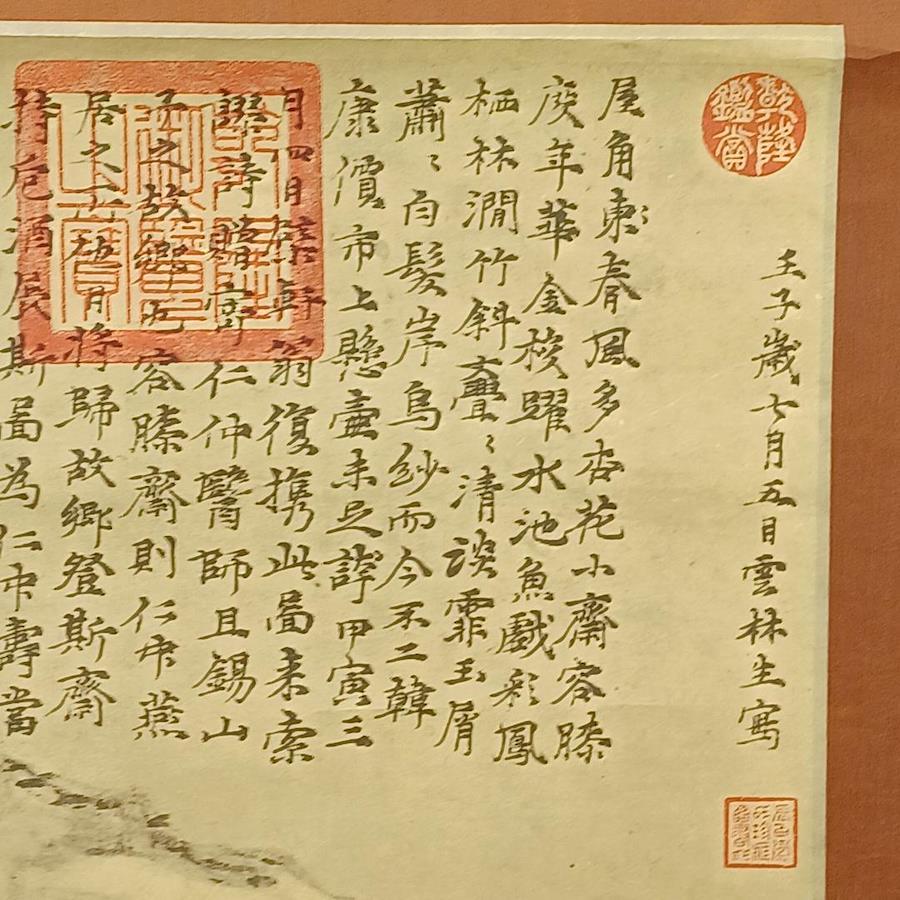 乾隆鑑賞
壬子歲七月五日雲林生寫
屋角東春風多杏花小齋容膝
度年華金梭躍水池魚戲彩鳳
栖林澗竹斜亹〻清談霏玉屑
蕭〻白髮岸烏紗而今不二韓
康價市上懸壺未足誇甲寅三
月四日檗軒翁復携此啚来索
謬詩贈寄仁仲醫師且錫山
予之故鄉也容膝齋則仁仲燕
居之所他日將歸故鄉登斯齋
持卮酒展斯啚為仁仲壽當